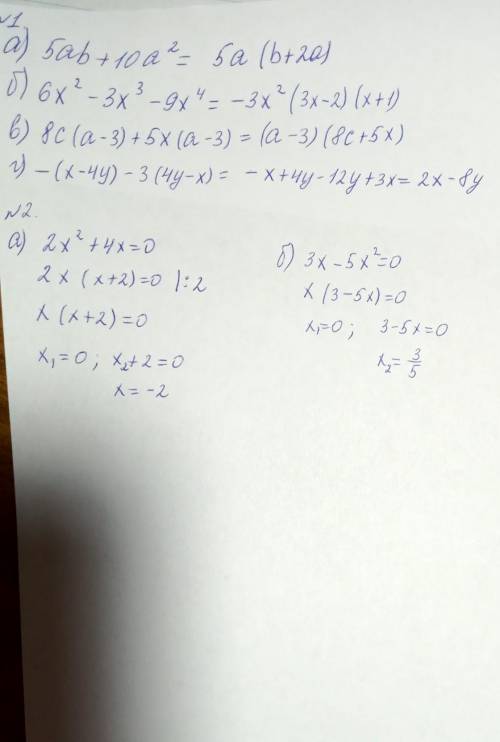 №1
а) 5ab + 10a² = 5a (b+2a)
б) 6x² - 3x³ - 9x⁴ = -3x² (3x-2) (x+1)
в) 8c (a-3) + 5x (a-3) = (a-3) (8c+5x)
г) -(x-4y) - 3 (4y-x) = -x+4y-12y+3x = 2x-8y
№2.
а) 2x² + 4x = 0
2x (x+2) = 0 |:2
x (x+2) = 0
x₁ = 0 ; x₂+2 = 0
x = -2
б) 3x - 5x² = 0
x (3-5x) = 0
x₁ = 0 ; 3-5x = 0
x₂ = 3/5